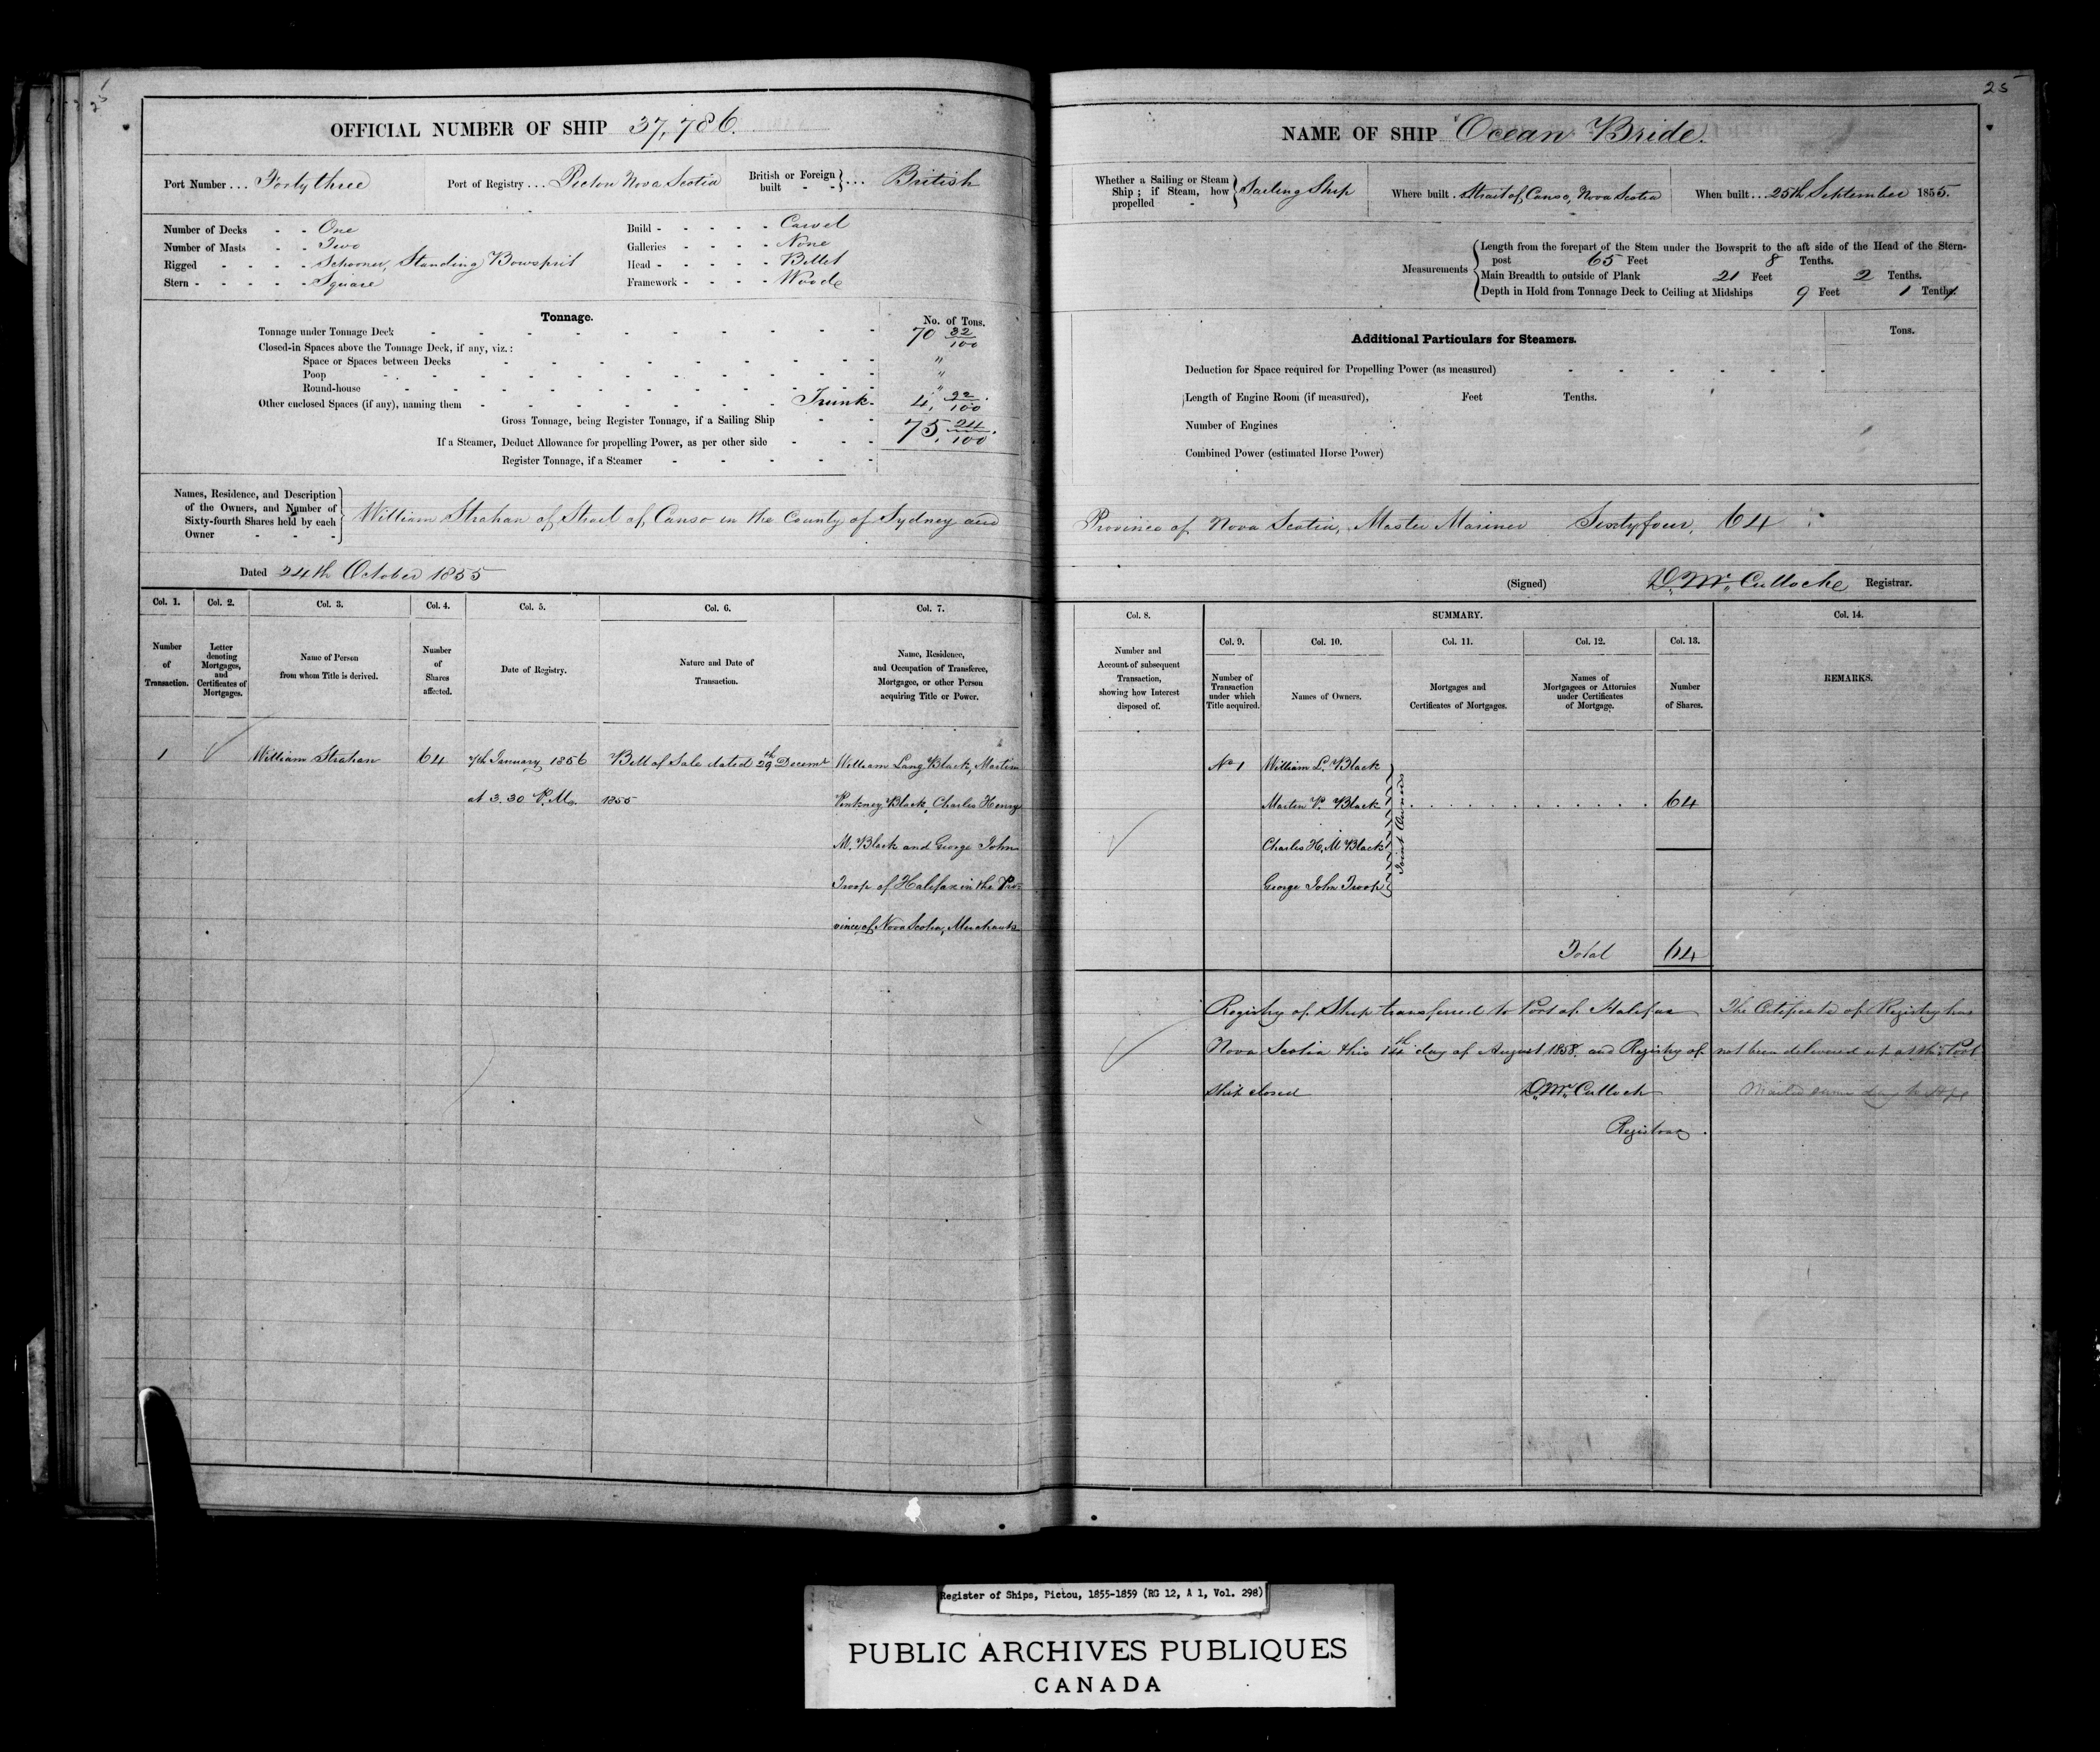 25
OFFICIAL NUMBER OF SHIP 37,786.
Port Number ... Forty three
Port of Registry ... Pictou Nova Scotia
British or Foreign built - - } ... British
Number of Decks - - One
Number of Masts - - Two
Rigged - - - - Schooner, Standing Bowsprit
Stern - - - - - Square
Build - - - - - Carvel
Galleries - - - - None
Head - - - - - Billet
Framework - - - - Wood
Tonnage.
No. of Tons.
Tonnage under Tonnage Deck 70 32/100
Closed-in Spaces above the Tonnage Deck, if any, viz.:
Space or Spaces between Decks "
Poop "
Round-house "
Other enclosed Spaces (if any), naming them Trunk - 4, 92/100
Gross Tonnage, being Register Tonnage, if a Sailing Ship 75, 24/100.
If a Steamer, Deduct Allowance for propelling Power, as per other side
Register Tonnage, if a Steamer
Names, Residence, and Description
of the Owners, and Number of
Sixty-fourth Shares held by each
Owner - - -
William Strahan of Strait of Canso in the County of Sydney and
Dated 24th October 1855
Col. 1. Col. 2. Col. 3. Col. 4. Col. 5. Col. 6. Col. 7.
Number of Transaction.
Letter denoting Mortgages, and Certificates of Mortgages.
Name of Person from whom Title is derived.
Number of Shares affected.
Date of Registry.
Nature and Date of Transaction.
Name, Residence, and Occupation of Transferee, Mortgagee, or other Person acquiring Title or Power.
1 William Strahan 64 7th January 1856 Bill of Sale dated 29th Decemr William Lang Black, Martin
at 3.30 P.M. 1855 Pinkney Black, Charles Henry
M. Black and George John
Troop of Halifax in the Pro-
vince of Nova Scotia, Merchants
25
NAME OF SHIP Ocean Bride.
Whether a Sailing or Steam Ship; if Steam, how propelled - } Sailing Ship
Where built . Strait of Canso, Nova Scotia
When built ... 25th September 1855.
Measurements
Length from the forepart of the Stem under the Bowsprit to the aft side of the Head of the Stern-
post 65 Feet 8 Tenths.
Main Breadth to outside of Plank 21 Feet 2 Tenths.
Depth in Hold from Tonnage Deck to Ceiling at Midships 9 Feet 1 Tenths.
Additional Particulars for Steamers.
Tons.
Deduction for Space required for Propelling Power (as measured)
Length of Engine Room (if measured), Feet Tenths.
Number of Engines
Combined Power (estimated Horse Power)
Province of Nova Scotia, Master Mariner Sixtyfour, 64
(Signed) D. McCulloche Registrar.
Col. 8. SUMMARY. Col. 14.
Col. 9. Col. 10. Col. 11. Col. 12. Col. 13.
Number and Account of subsequent Transaction, showing how Interest disposed of.
Number of Transaction under which Title acquired.
Names of Owners.
Mortgages and Certificates of Mortgages.
Names of Mortgagees or Attornies under Certificates of Mortgage.
Number of Shares.
REMARKS.
No 1 William L. Black
Martin P. Black 64
Charles H. M Black
George John Troop
Joint Owners
Total 64
Registry of Ship transferred to Port of Halifax
Nova Scotia this 14th day of August 1858. and Registry of
Ship closed D. McCulloch
Registrar.
The Certificate of Registry has
not been delivered up at this Port
Mailed same day to
Register of Ships, Pictou, 1855-1859 (RG 12, A 1, Vol. 298)
PUBLIC ARCHIVES PUBLIQUES
CANADA